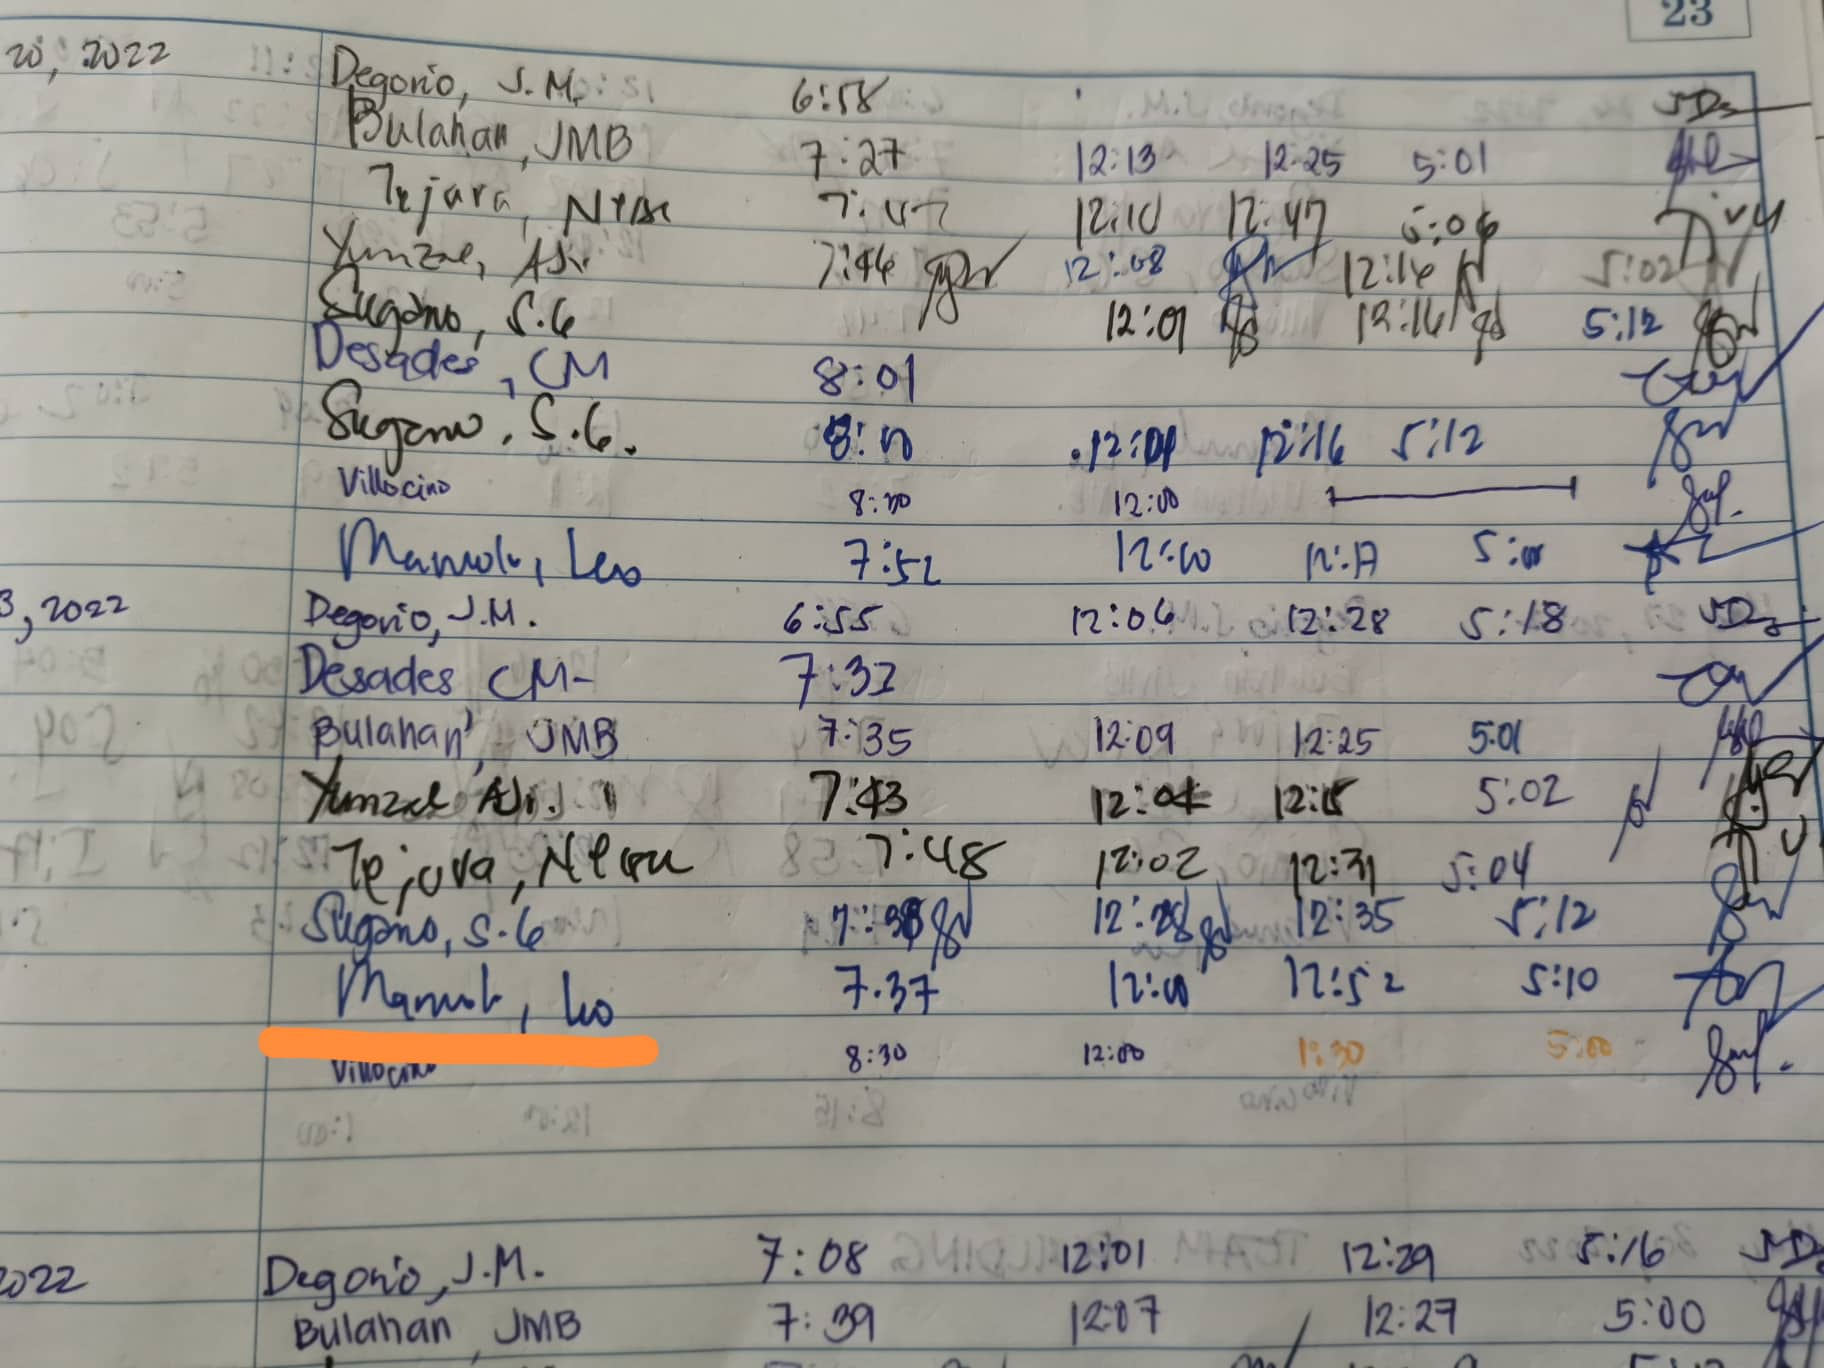 23
20, 2022 Degorio, J.M. 6:58
Bulahan, JMB 7:27 12:13 12:25 5:01
Tejara, 12:10 12:47 5:06
Yunzal, 7:46 12:08 12:16 5:02
Sugano, S.G 12:01 12:16 5:12
Desades, CM 8:01
Sugano, S.G. 8:00 12:01 12:16 5:12
Villocino 8:30 12:00
Leo 7:52 12:00 12:17 5:00
3, 2022 Degorio, J.M. 6:55 12:06 12:28 5:18
Desades CM- 7:32
Bulahan, JMB 7:35 12:09 12:25 5:01
Yunzal 7:43 12:04 12:15 5:02
Tejara, 7:48 12:02 12:31 5:04
Sugano, S.G 7:38 12:28 12:35 5:12
Leo 7:37 12:00 12:52 5:10
Villocino 8:30 12:00 1:30 5:00
2022 Degorio, J.M. 7:08 12:01 12:29 5:16
Bulahan JMB 7:39 12:07 12:27 5:00